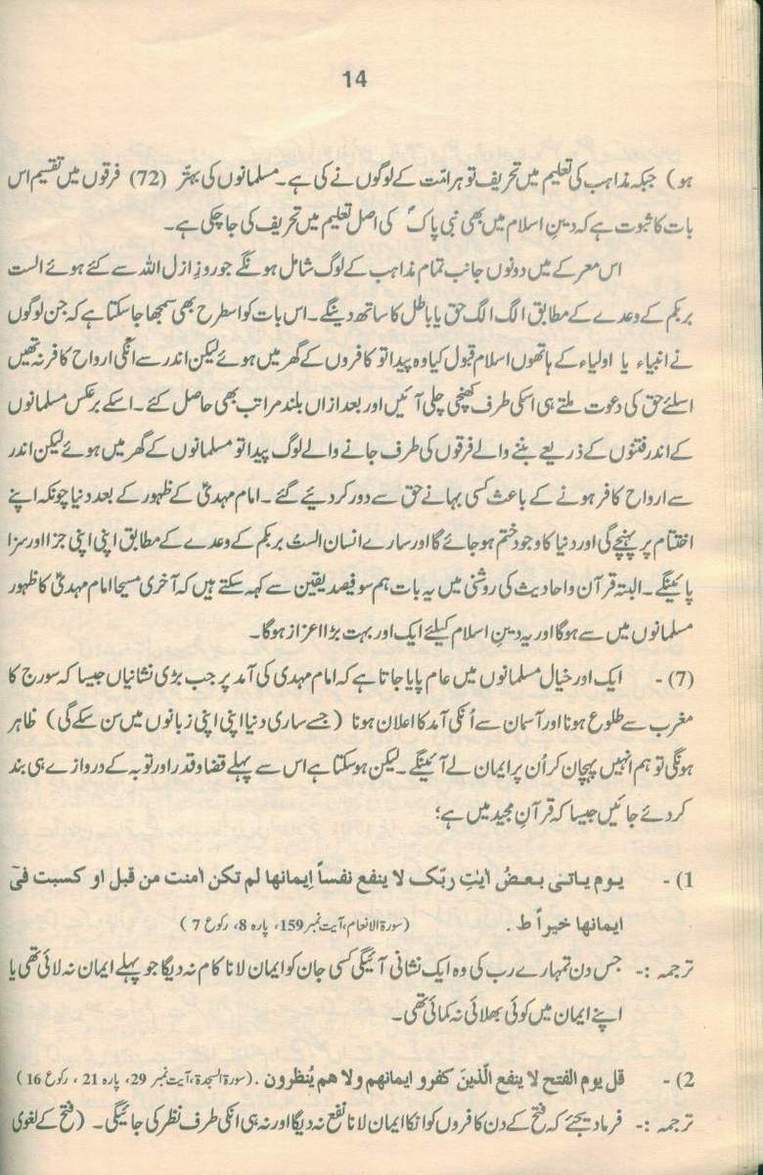 14
ہو) جبکہ مذاہب کی تعلیم میں تحریف تو ہر امّت کے لوگوں نے کی ہے۔ مسلمانوں کی بہتّر (72) فرقوں میں تقسیم اس
بات کا ثبوت ہے کہ دینِ اسلام میں بھی نبی پاکؐ کی اصل تعلیم میں تحریف کی جا چکی ہے۔
اس معرکے میں دونوں جانب تمام مذاہب کے لوگ شامل ہونگے جو روزِ ازل اللہ سے کئے ہوئے الست
بربکم کے وعدے کے مطابق الگ الگ حق یا باطل کا ساتھ دینگے۔ اس بات کو اسطرح بھی سمجھا جا سکتا ہے کہ جن لوگوں
نے انبیاء یا اولیاء کے ہاتھوں اسلام قبول کیا وہ پیدا تو کافروں کے گھر میں ہوئے لیکن اندر سے انکی ارواح کافر نہ تھیں
اسلئے حق کی دعوت ملتے ہی اسکی طرف کھنچی چلی آئیں اور بعد ازاں بلند مراتب بھی حاصل کئے۔ اسکے برعکس مسلمانوں
کے اندر فتنوں کے ذریعے بننے والے فرقوں کی طرف جانے والے لوگ پیدا تو مسلمانوں کے گھر میں ہوئے لیکن اندر
سے ارواح کافر ہونے کے باعث کسی بہانے حق سے دور کر دیئے گئے۔ امام مہدیؑ کے ظہور کے بعد دنیا چونکہ اپنے
اختتام پر پہنچے گی اور دنیا کا وجود ختم ہو جائے گا اور سارے انسان الست بربکم کے وعدے کے مطابق اپنی اپنی جزا اور سزا
پائینگے۔ البتہ قرآن و احادیث کی روشنی میں یہ بات ہم سو فیصد یقین سے کہہ سکتے ہیں کہ آخری مسیحا امام مہدیؑ کا ظہور
مسلمانوں میں سے ہوگا اور یہ دینِ اسلام کیلئے ایک اور بہت بڑا اعزاز ہوگا۔
(7) - ایک اور خیال مسلمانوں میں عام پایا جاتا ہے کہ امام مہدی کی آمد پر جب بڑی نشانیاں جیسا کہ سورج کا
مغرب سے طلوع ہونا اور آسمان سے اُنکی آمد کا اعلان ہونا (جسے ساری دنیا اپنی اپنی زبانوں میں سن سکے گی) ظاہر
ہونگی تو ہم انہیں پہچان کر اُن پر ایمان لے آئینگے۔ لیکن ہو سکتا ہے اس سے پہلے قضا و قدر اور توبہ کے دروازے ہی بند
کر دئے جائیں جیسا کہ قرآنِ مجید میں ہے؛
1) - یوم یاتی بعضُ اٰیٰتِ ربّک لا ینفع نفساً اِیمانها لم تکن اٰمنت من قبل او کسبت فیٓ
ایمانها خیراً ط . (سورۃ الانعام، آیت نمبر 159، پارہ 8، رکوع 7)
ترجمہ :- جس دن تمہارے رب کی وہ ایک نشانی آئیگی کسی جان کو ایمان لانا کام نہ دیگا جو پہلے ایمان نہ لائی تھی یا
اپنے ایمان میں کوئی بھلائی نہ کمائی تھی۔
2) - قل یوم الفتح لا ینفع الّذینَ کفرو ایمانهم ولا هم یُنظرون . (سورۃ السجدۃ، آیت نمبر 29، پارہ 21، رکوع 16)
ترجمہ :- فرما دیجئے کہ فتح کے دن کافروں کو انکا ایمان لانا نفع نہ دیگا اور نہ ہی انکی طرف نظر کی جائیگی۔ (فتح کے لغوی